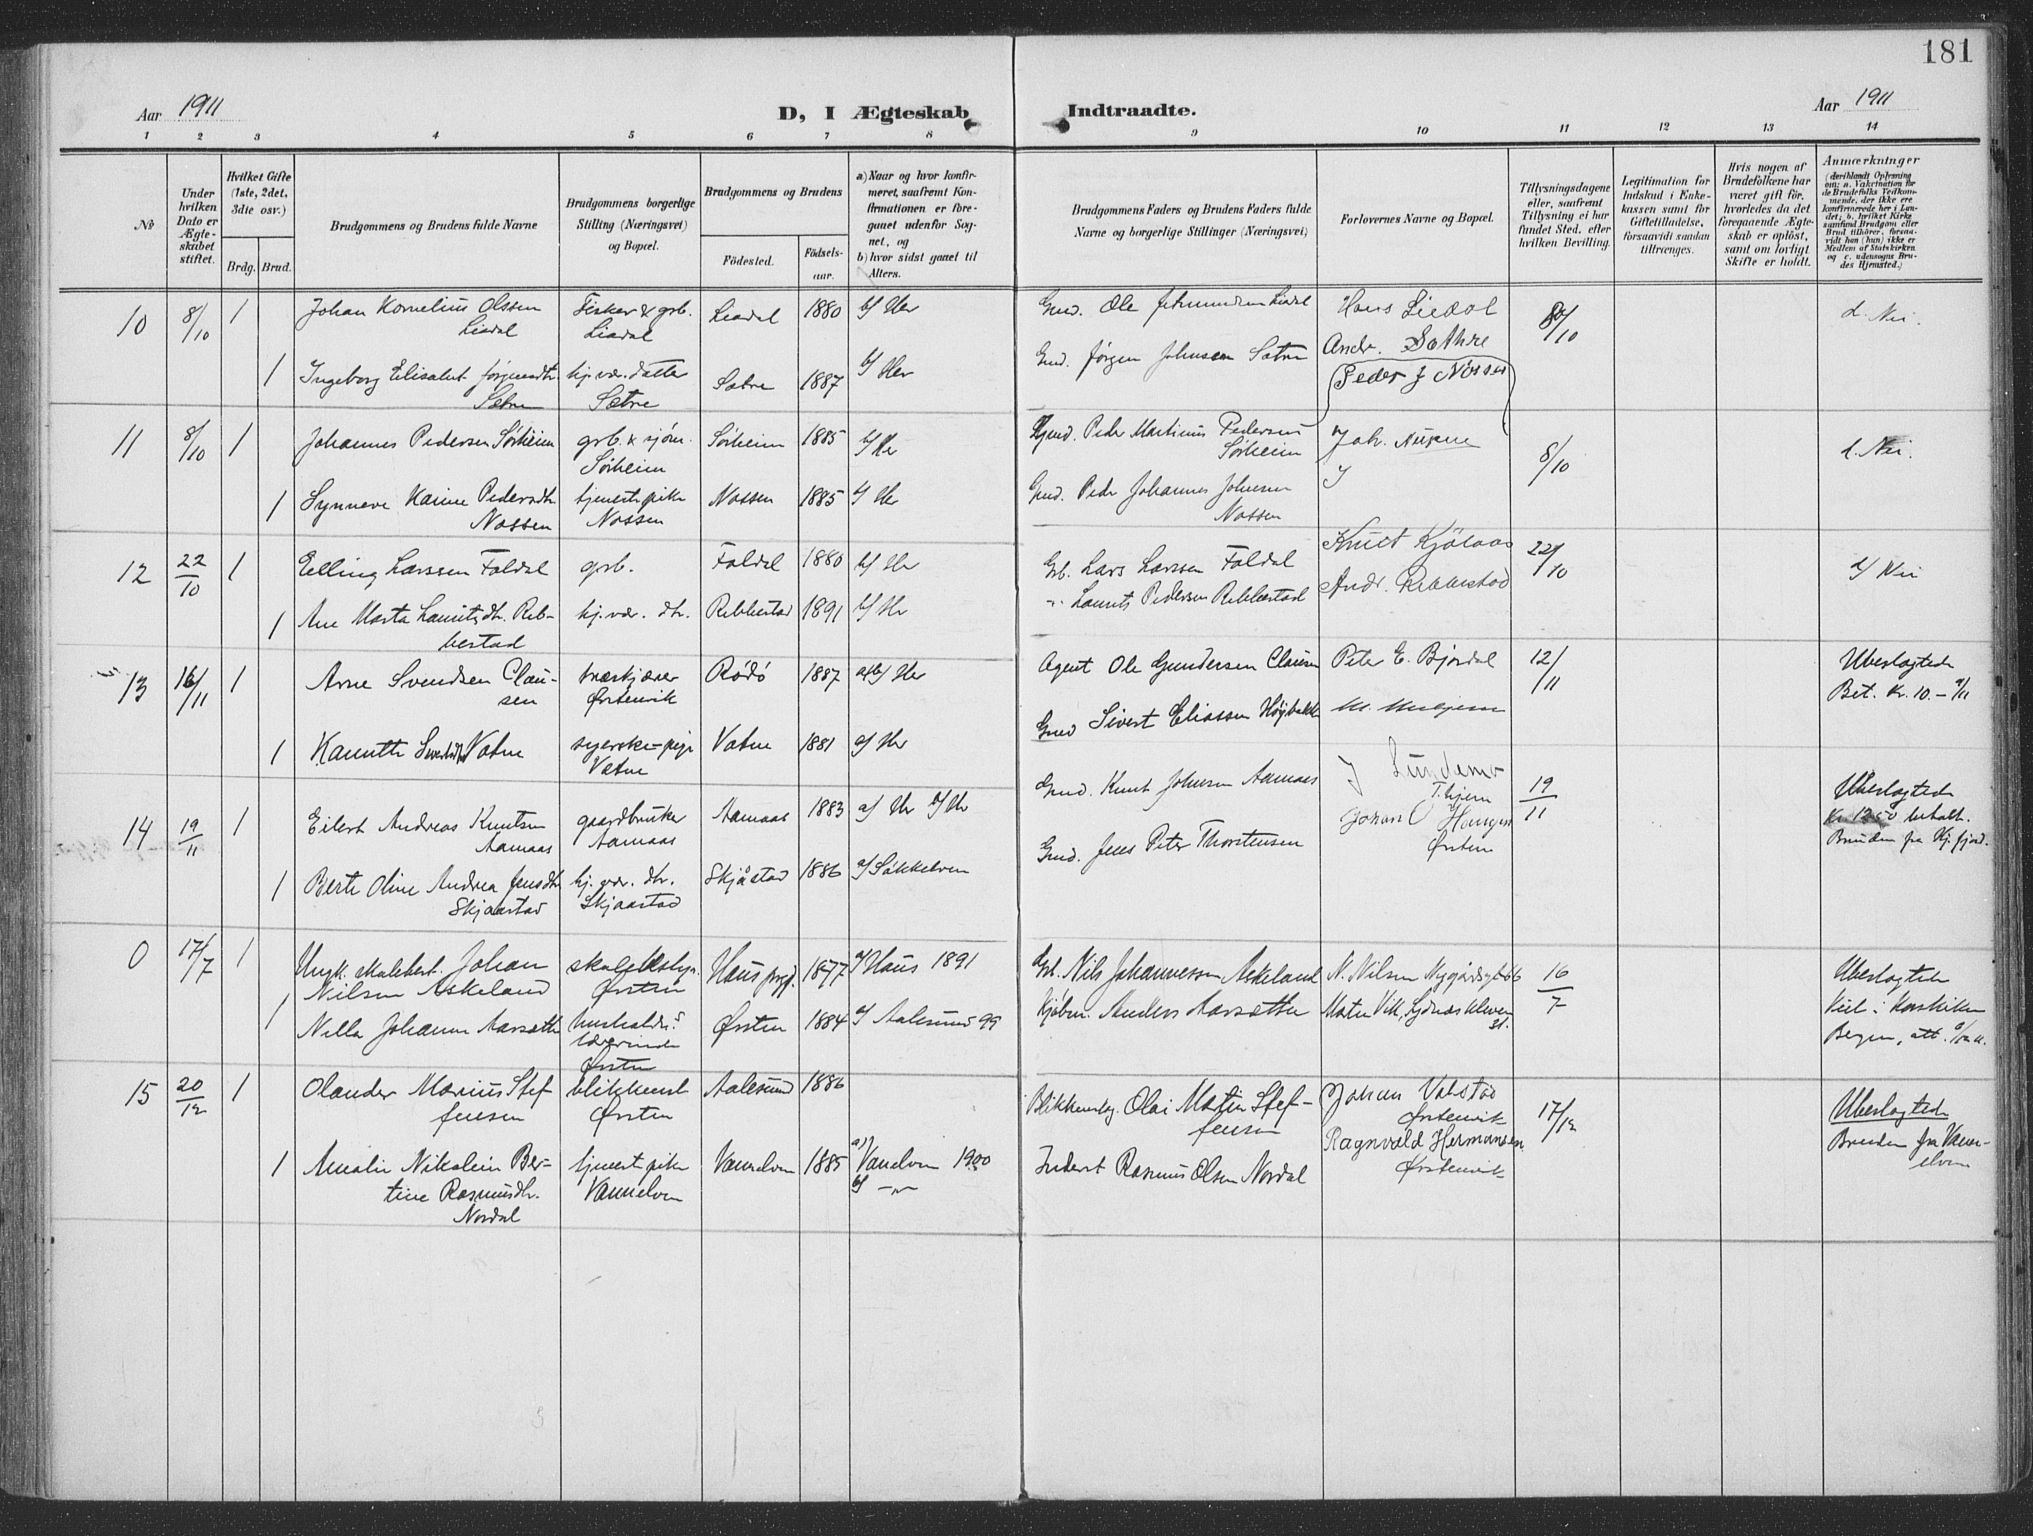 181
Aar 1911
D, I Ægteskab Indtraadte.
Aar 1911
1 2 3 4 5 6 7 8 9 10 11 12 13 14
No
Under hvilken Dato er Ægteskabet stiftet.
Hvilket Gifte (1ste, 2det, 3die osv.)
Brdg. Brud.
Brudgommens og Brudens fulde Navne
Brudgommens borgerlige Stilling (Næringsvei) og Bopæl.
Brudgommens og Brudens
Fødested.
Fødselsaar.
a) Naar og hvor konfirmeret, saafremt Konfirmationen er foregaaet udenfor Sognet, og
b) hvor sidst gaaet til Alters.
Brudgommens Faders og Brudens Faders fulde Navne og borgerlige Stillinger (Næringsvei)
Forlovernes Navne og Bopæl.
Tillysningsdagene eller, saafremt Tillysning ei har fundet Sted, efter hvilken Bevilling.
Legitimation for Indskud i Enkekassen samt for Giftetilladelse, forsaavidt saadan tiltrænges.
Hvis nogen af Brudefolkene har været gift før, hvorledes da det foregaaende Ægteskab er opløst, samt om lovligt Skifte er holdt.
Anmærkninger
10 8/10 1 Johan Kornelius Olssen Liadal
Fisker & grb. Liadal
Liadal 1880 b/ Her
Gmd. Ole Liadal
Hans Liedal
Andr. Sæthre
8/10
d. Nei.
1 Ingeborg Elisabet Jørgensdtr. Sætre
hj. vær. datter Sætre
Sætre 1887 b/ Her
Gmd. Jørgen Johnsen Sætre
(Peder J Nossen)
11 8/10 1 Johannes Pedersen Sørheim
grb. & sjøm. Sørheim
Sørheim 1885 b/ Her
Gmd. Peder Martinus Pedersen Sørheim
Joh.
8/10
d. Nei.
1 Synneve Karine Pedersdtr. Nossen
tjenestepike Nossen
Nossen 1885 b/ Her
Gmd. Peder Johannes Johnsen Nossen
12 22/10 1 Elling Larssen Foldal
grb.
Foldal 1880 b/ Her
Grb. Lars Larssen Foldal
Knut Kjölaas
22/10
d/ Nei
1 Ane Marta Lauritsdtr. Ribbestad
hj. vær. dtr.
Ribbestad 1891 b/ Her
Laurits Pedersen Ribbestad
Andr. Ribbestad
13 16/11 1 Arne Svendsen Clausen
træskjærer Ørstenvik
Rødø 1887 a & b/ Her
Agent Ole Gundersen Clausen
Peter E. Bjørdal
12/11
Ubeslægtede
Bet. Kr. 10.- 9/11
1 Vatne
syerske-pige Vatne
Vatne 1881 a/ Her
Gmd Sivert Eliassen
14 19/11 1 Eilert Andreas Knutsen Aamaas
gaardbruker Aamaas
Aamaas 1883 a/ Her b/ Her
Gmd. Knut Johnsen Aamaas
J
19/11
Ubeslægtede
Kr. 12.50 betalt.
Bruden fra Hj.fjord.
1 Berte Oline Andrea Jensdtr. Skjaastad
hj. vær. dtr. Skjaastad
Skjåstad 1886 a/ Søkkelven
Gmd. Jens Peter Thorstensen
Johan Ørsten
0 17/7 1 Ungk. skolebest. Johan Nilsen Askeland
skolebestyr. Ørsten
Haus prgj. 1877 a/ Haus 1891
Grb. Nils Johannessen Askeland
N. Nilsen Nygårdsgt 66
16/7
Ubeslægtede
Viet i Korskirken
Bergen, att.
1 Nilla Johanne Aarsæther
husholdn.s lærerinde Ørsten
Ørsten 1884 a/ Aalesund 99
Kjøbm. Anders Aarsæther
15 20/12 1 Olander Marius Steffensen
blikkensl. Ørsten
Aalesund 1886
Blikkenslg. Olai Martin Steffensen
Johan Vatstad Ørstenvik
17/12
Ubeslægtede
Bruden fra Vannelven
1 Amalie Nikolein Bertine Rasmusdtr. Nordal
tjenestepike Vannelven
Vannelven 1885 a) Vanelven 1900
b/ —"—
Inderst Rasmus Olsen Nordal
Ragnvald Hermansen Ørstenvik